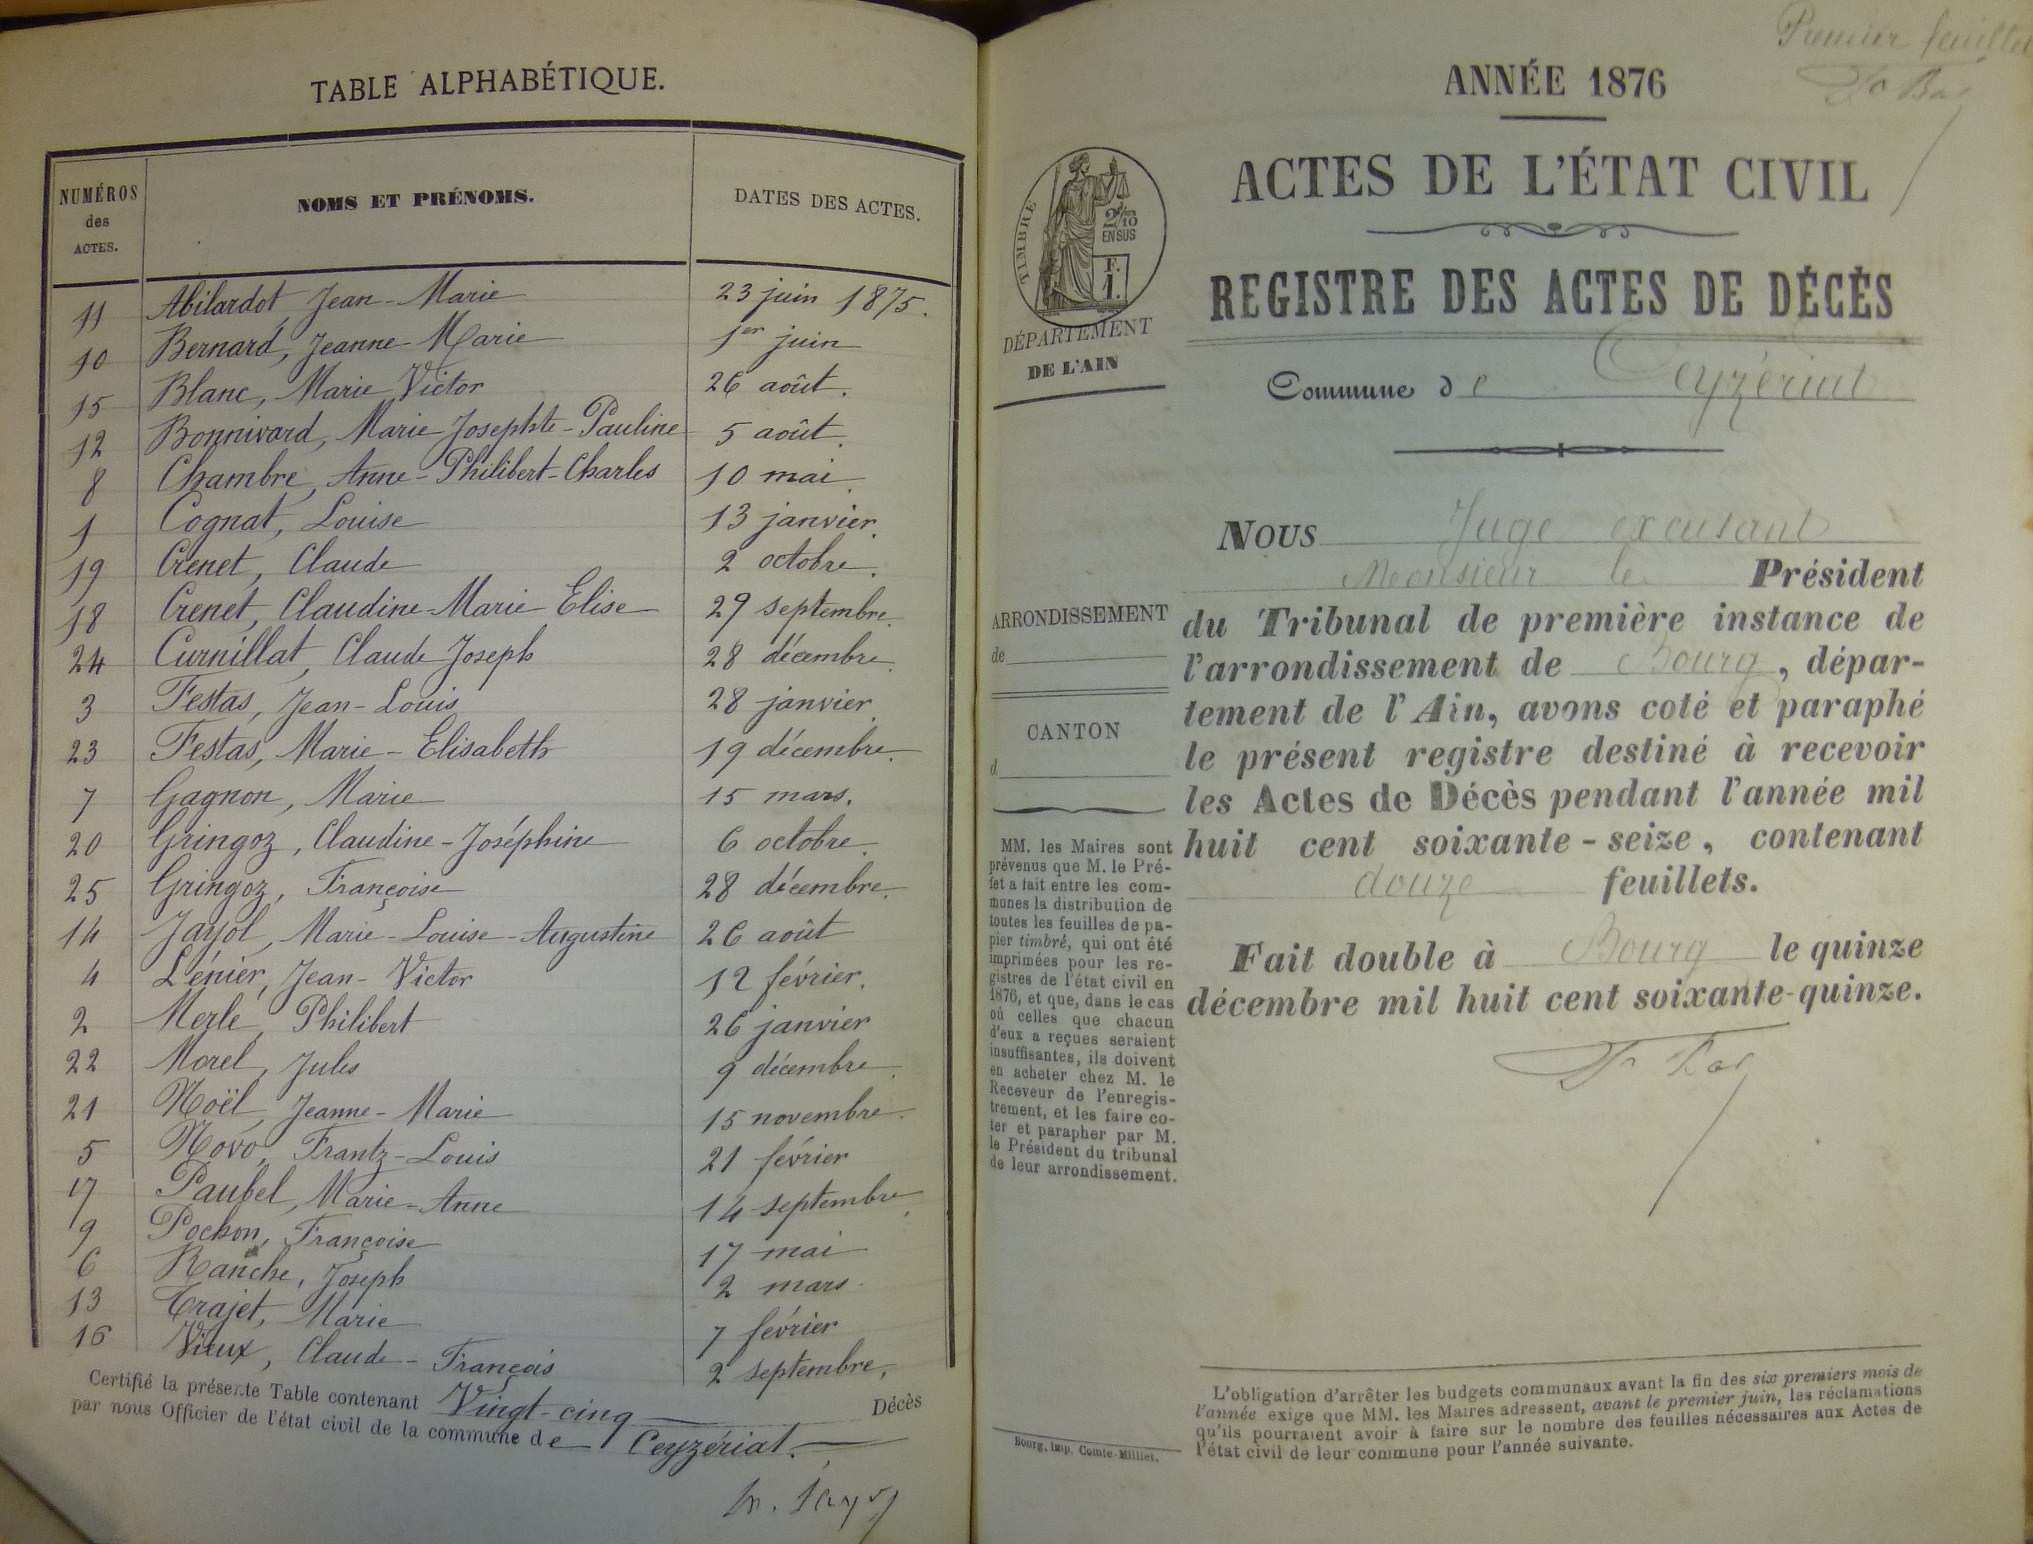 TABLE ALPHABÉTIQUE.
NUMÉROS des ACTES. NOMS ET PRÉNOMS. DATES DES ACTES.
11 Abilardot, Jean-Marie 23 juin 1875.
10 Bernard, Jeanne-Marie 1er juin
15 Blanc, Marie Victor 26 août.
12 Bonnivard, Marie Josephte-Pauline 5 août.
8 Chambre, Anne-Philibert-Charles 10 mai.
1 Cognat, Louise 13 janvier.
19 Crenet, Claude 2 octobre.
18 Crenet, Claudine-Marie Elise 29 septembre.
24 Curnillat, Claude Joseph 28 décembre.
3 Festas, Jean-Louis 28 janvier.
23 Festas, Marie-Elisabeth 19 décembre.
7 Gagnon, Marie 15 mars.
20 Gringoz, Claudine-Joséphine 6 octobre.
25 Gringoz, Françoise 28 décembre.
14 Jayol, Marie-Louise-Augustine 26 août
4 Lénier, Jean-Victor 12 février.
2 Merle, Philibert 26 janvier
22 Morel, Jules 9 décembre.
21 Noël, Jeanne-Marie 15 novembre.
5 Novo, Frantz-Louis 21 février
17 Paubel, Marie-Anne 14 septembre.
9 Pochon, Françoise 17 mai
6 Ranche, Joseph 2 mars.
13 Trajet, Marie 7 février
16 Vieux, Claude-François 2 septembre.
Certifié la présente Table contenant Vingt-cinq Décès
par nous Officier de l'état civil de la commune de Ceyzériat.
Premier feuillet
ANNÉE 1876
ACTES DE L'ÉTAT CIVIL
REGISTRE DES ACTES DE DÉCÈS
TIMBRE
2/10
EN SUS
F.
1.
DÉPARTEMENT
DE L'AIN
Commune de Ceyzériat
ARRONDISSEMENT
de
CANTON
d
MM. les Maires sont
prévenus que M. le Pré-
fet a fait entre les com-
munes la distribution de
toutes les feuilles de pa-
pier timbré, qui ont été
imprimées pour les re-
gistres de l'état civil en
1876, et que, dans le cas
où celles que chacun
d'eux a reçues seraient
insuffisantes, ils doivent
en acheter chez M. le
Receveur de l'enregis-
trement, et les faire co-
ter et parapher par M.
le Président du tribunal
de leur arrondissement.
Bourg, Imp. Comte-Milliet.
NOUS Juge excusant
Monsieur le Président
du Tribunal de première instance de
l'arrondissement de Bourg, dépar-
tement de l'Ain, avons coté et paraphé
le présent registre destiné à recevoir
les Actes de Décès pendant l'année mil
huit cent soixante-seize, contenant
douze feuillets.
Fait double à Bourg le quinze
décembre mil huit cent soixante-quinze.
L'obligation d'arrêter les budgets communaux avant la fin des six premiers mois de
l'année exige que MM. les Maires adressent, avant le premier juin, les réclamations
qu'ils pourraient avoir à faire sur le nombre des feuilles nécessaires aux Actes de
l'état civil de leur commune pour l'année suivante.